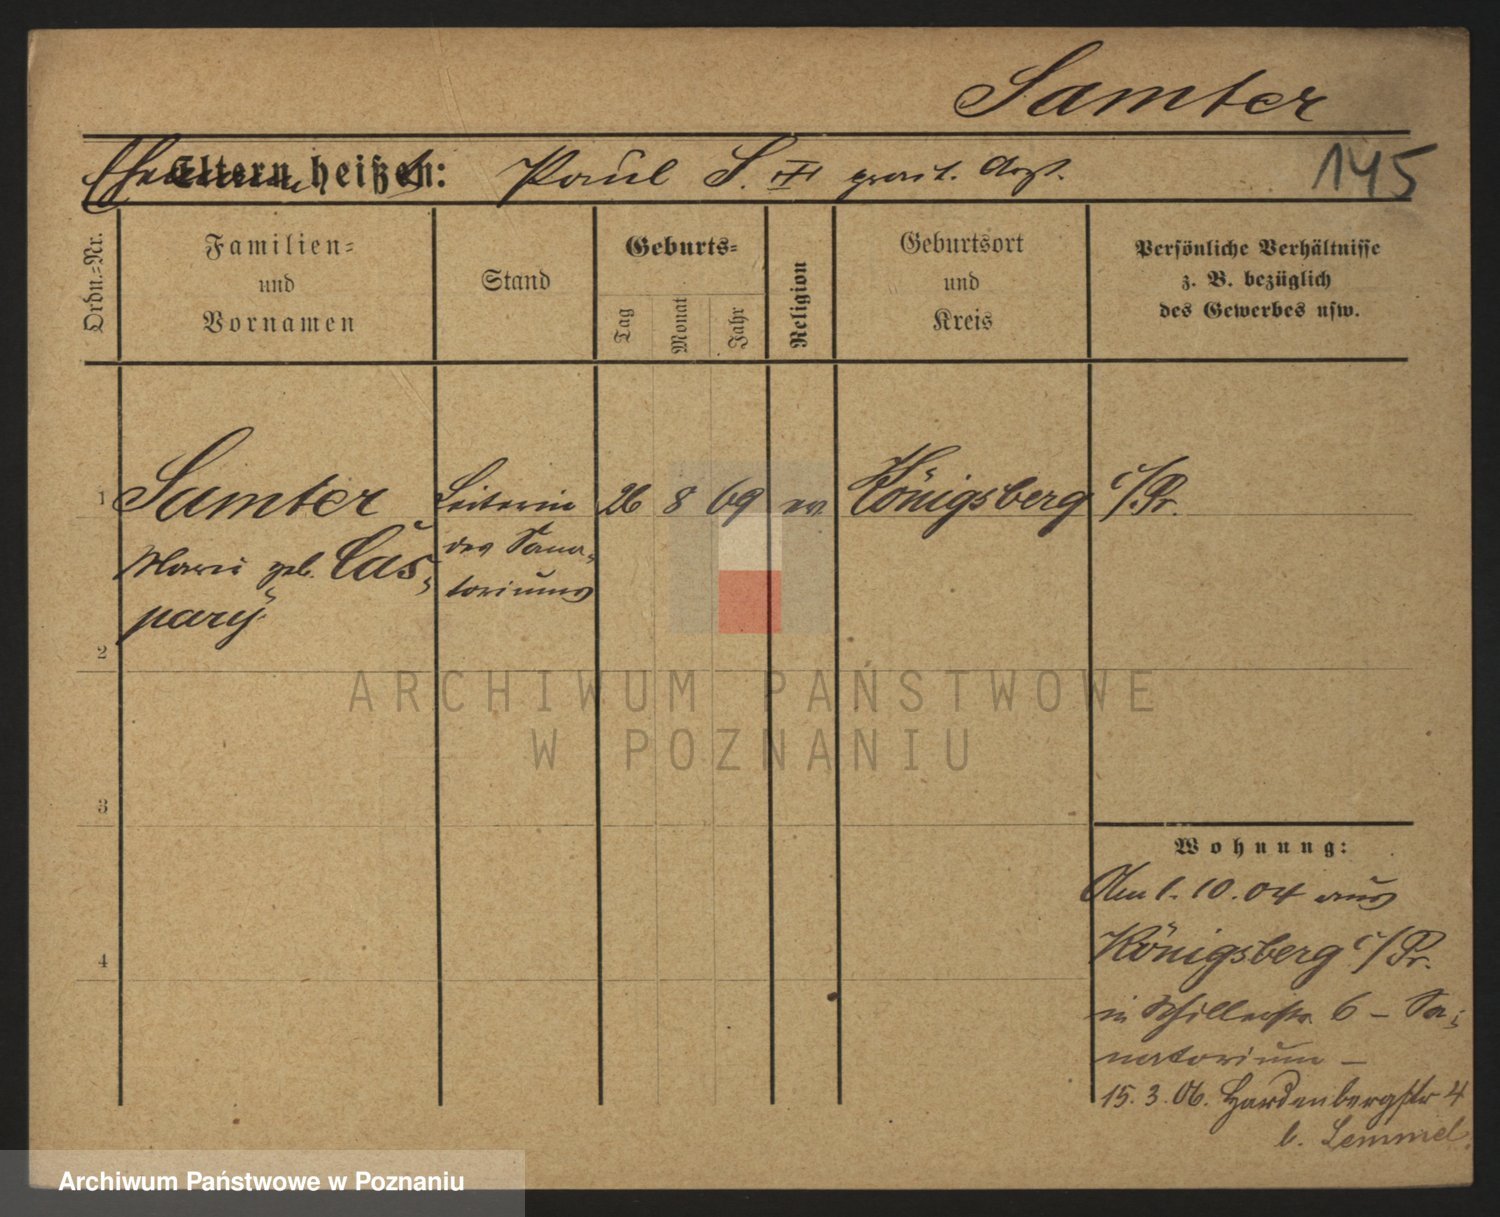 Samter
Eltern heißen: Paul S. III prakt. Arzt.
145
Ordn.=Nr.
Familien=
und
Vornamen
Stand
Geburts=
Tag
Monat
Jahr
Religion
Geburtsort
und
Kreis
Persönliche Verhältnisse
z. B. bezüglich
des Gewerbes usw.
1 Samter Leiterin 26 8 69 ev. Königsberg i/Pr.
Marie geb. Cas- des Sana-
pary toriums
2
3
4
ARCHIWUM PAŃSTWOWE
W POZNANIU
Wohnung:
Am 1. 10. 04 aus
Königsberg i/Pr.
in Schillerstr. 6 – Sa-
natorium –
15. 3. 06. Hardenbergstr 4
b. Lemmel.
Archiwum Państwowe w Poznaniu